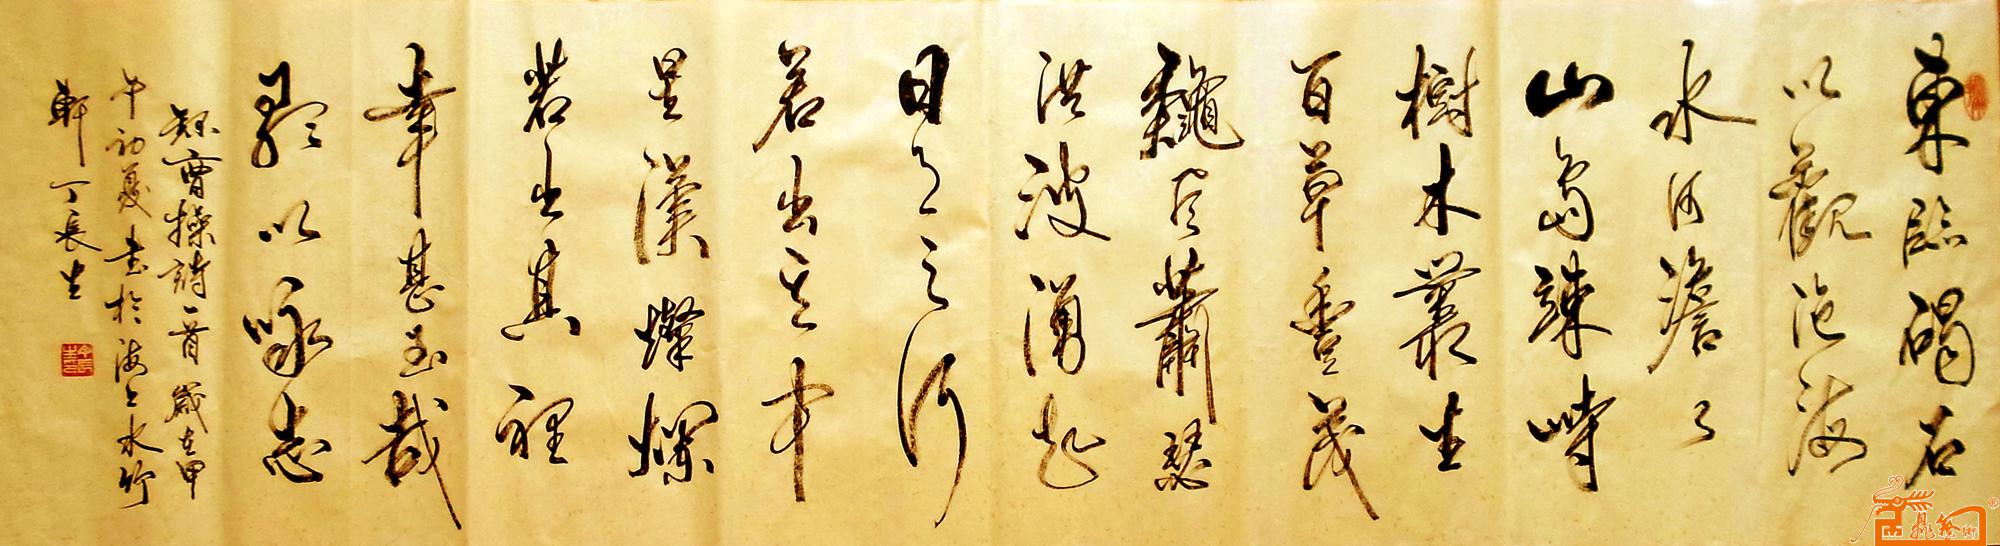 東臨碣石
以觀滄海
水何澹々
山島竦峙
樹木叢生
百草豐茂
龝風蕭瑟
洪波涌起
日月之行
若出其中
星漢燦爛
若出其裡
幸甚至哉
歌以咏志
錄曹操詩一首歲在甲
午初夏書於海上水竹
軒丁長生